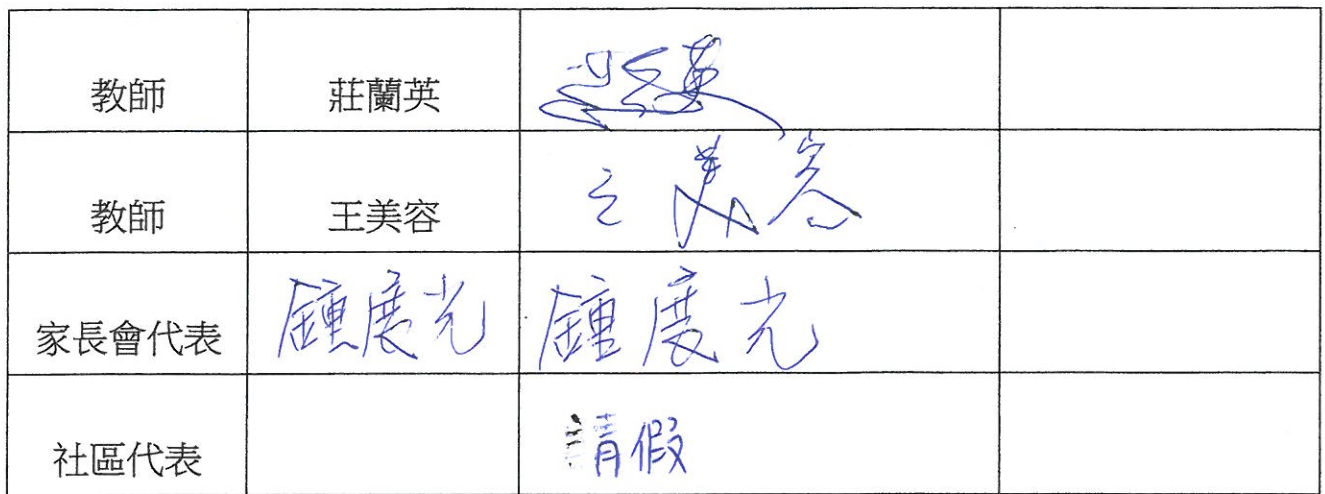 教師 莊蘭英 莊蘭英
教師 王美容 王美容
家長會代表 鍾展光 鍾展光
社區代表 請假